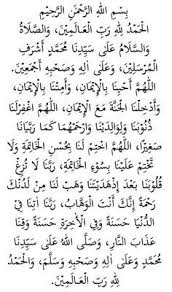 بِسْمِ اللهِ الرَّحْمَنِ الرَّحِيْمِ
الْحَمْدُ لِلّٰهِ رَبِّ الْعَالَمِيْنَ، وَالصَّلَاةُ
وَالسَّلَامُ عَلَى سَيِّدِنَا مُحَمَّدٍ أَشْرَفِ
الْمُرْسَلِيْنَ، وَعَلَى اٰلِهِ وَصَحْبِهِ أَجْمَعِيْنَ.
اَللّٰهُمَّ أَحْيِنَا بِالْإِيْمَانِ، وَأَمِتْنَا بِالْإِيْمَانِ،
وَأَدْخِلْنَا الْجَنَّةَ مَعَ الْإِيْمَانِ. اَللّٰهُمَّ اغْفِرْ لَنَا
ذُنُوْبَنَا وَلِوَالِدِيْنَا وَارْحَمْهُمَا كَمَا رَبَّيَانَا
صَغِيْرًا. اَللّٰهُمَّ اخْتِمْ لَنَا بِحُسْنِ الْخَاتِمَةِ، وَلَا
تَخْتِمْ عَلَيْنَا بِسُوْءِ الْخَاتِمَةِ. رَبَّنَا لَا تُزِغْ
قُلُوْبَنَا بَعْدَ إِذْ هَدَيْتَنَا وَهَبْ لَنَا مِنْ لَدُنْكَ
رَحْمَةً إِنَّكَ أَنْتَ الْوَهَّابُ، رَبَّنَا اٰتِنَا فِي
الدُّنْيَا حَسَنَةً وَفِي الْاٰخِرَةِ حَسَنَةً وَقِنَا
عَذَابَ النَّارِ، وَصَلَّى اللهُ عَلَى سَيِّدِنَا
مُحَمَّدٍ وَعَلَى اٰلِهِ وَصَحْبِهِ وَسَلَّمَ، وَالْحَمْدُ
لِلّٰهِ رَبِّ الْعَالَمِيْنَ.